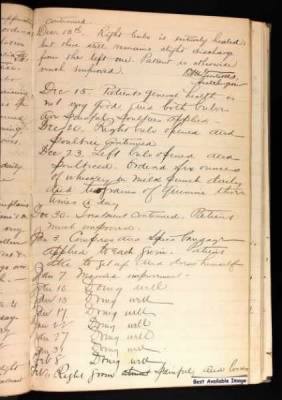 continued.
Dec 10th. Right bubo is entirely healed
but there still remains slight discharge
from the left one. Patient is otherwise
much improved.
Dec 15. Patients general health is
not very good and both bubos
are painful, poultices applied.
Dec 20. Right bubo opened and
poultice continued
Dec 23. Left bubo opened and
poulticed. Ordered six ounces
of whiskey in milk punch daily
and grains of quinine three
times a day
Dec 30. Treatment continued. Patient
much improved.
Jan 3. Compress and Spica bandage
applied to each groin. Patient
able to get up and dress himself
Jan 7. Marked improvement
Jan 10 Doing well
Jan 13 Doing well
Jan 17 Doing well
Jan 22 Doing well
Jan 27 Doing well
Jan 31 Doing well
Feb 8 Doing well
Right groin painful and
Best Available Image